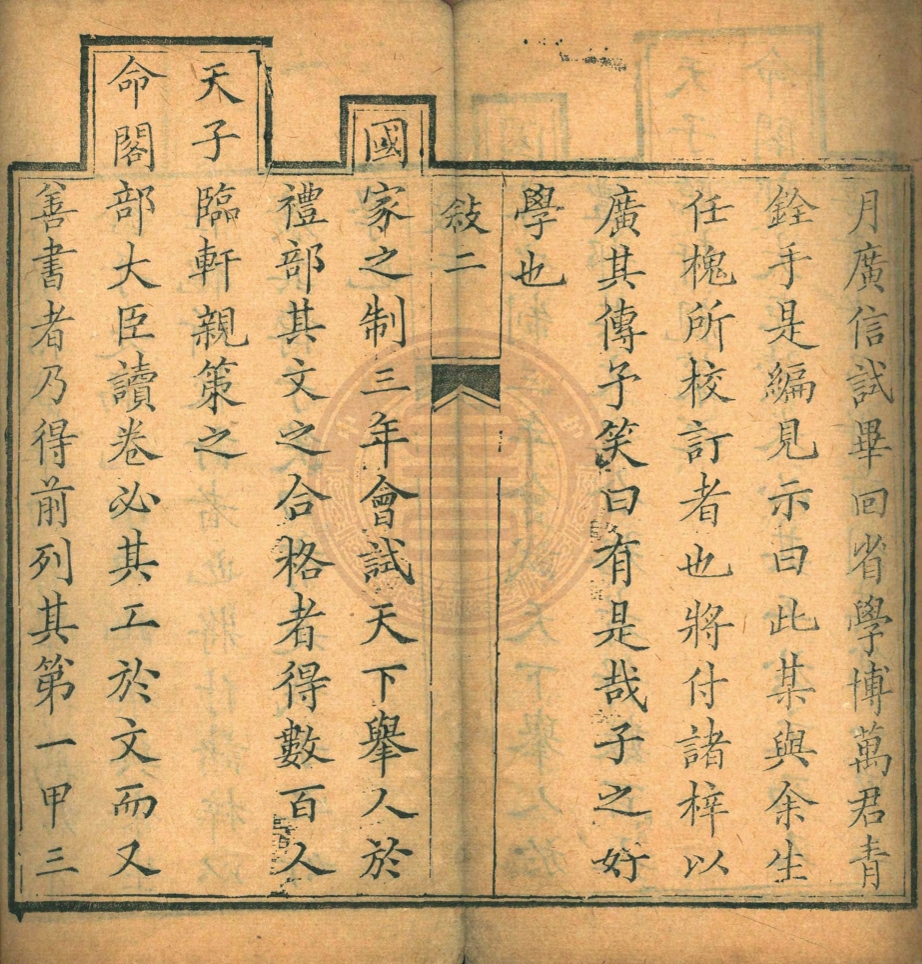 月廣信試畢回省學博萬君青
銓手是編見示曰此某與余生
任槐所校訂者也將付諸梓以
廣其傳予笑曰有是哉子之好
學也
敍二
國家之制三年會試天下舉人於
禮部其文之合格者得數百人
天子臨軒親策之
命閣部大臣讀卷必其工於文而又
善書者乃得前列其第一甲三